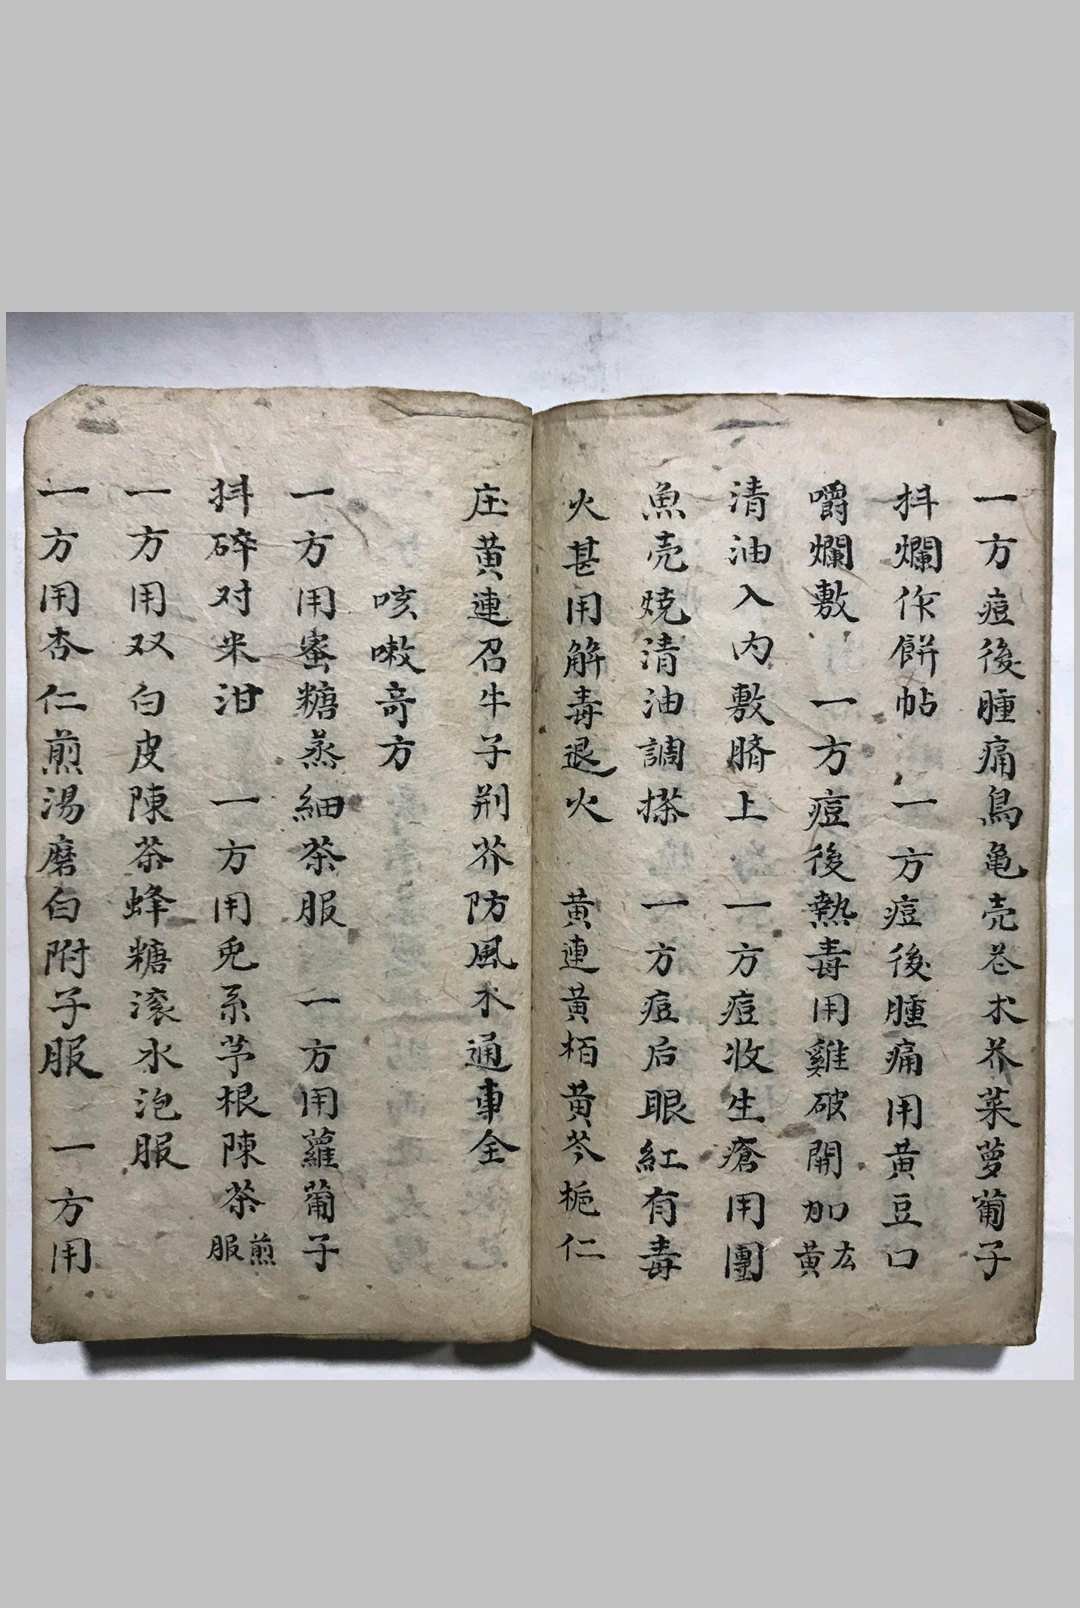 一方痘後腫痛烏亀壳苍术芥菜萝蔔子
抖爛作餅帖 一方痘後腫痛用黄豆口
嚼爛敷 一方痘後熱毒用雞破開加黄玄
清油入内敷臍上 一方痘收生瘡用團
魚壳燒清油調搽 一方痘后眼紅有毒
火甚用解毒退火 黄連黄栢黄芩栀仁
庄黄連召牛子荆芥防風木通車全
咳嗽奇方
一方用蜜糖蒸細茶服 一方用蘿蔔子
抖碎对米泔 一方用兎系芧根陳茶煎服
一方用双白皮陳茶蜂糖滚水泡服
一方用杏仁煎湯磨白附子服 一方用